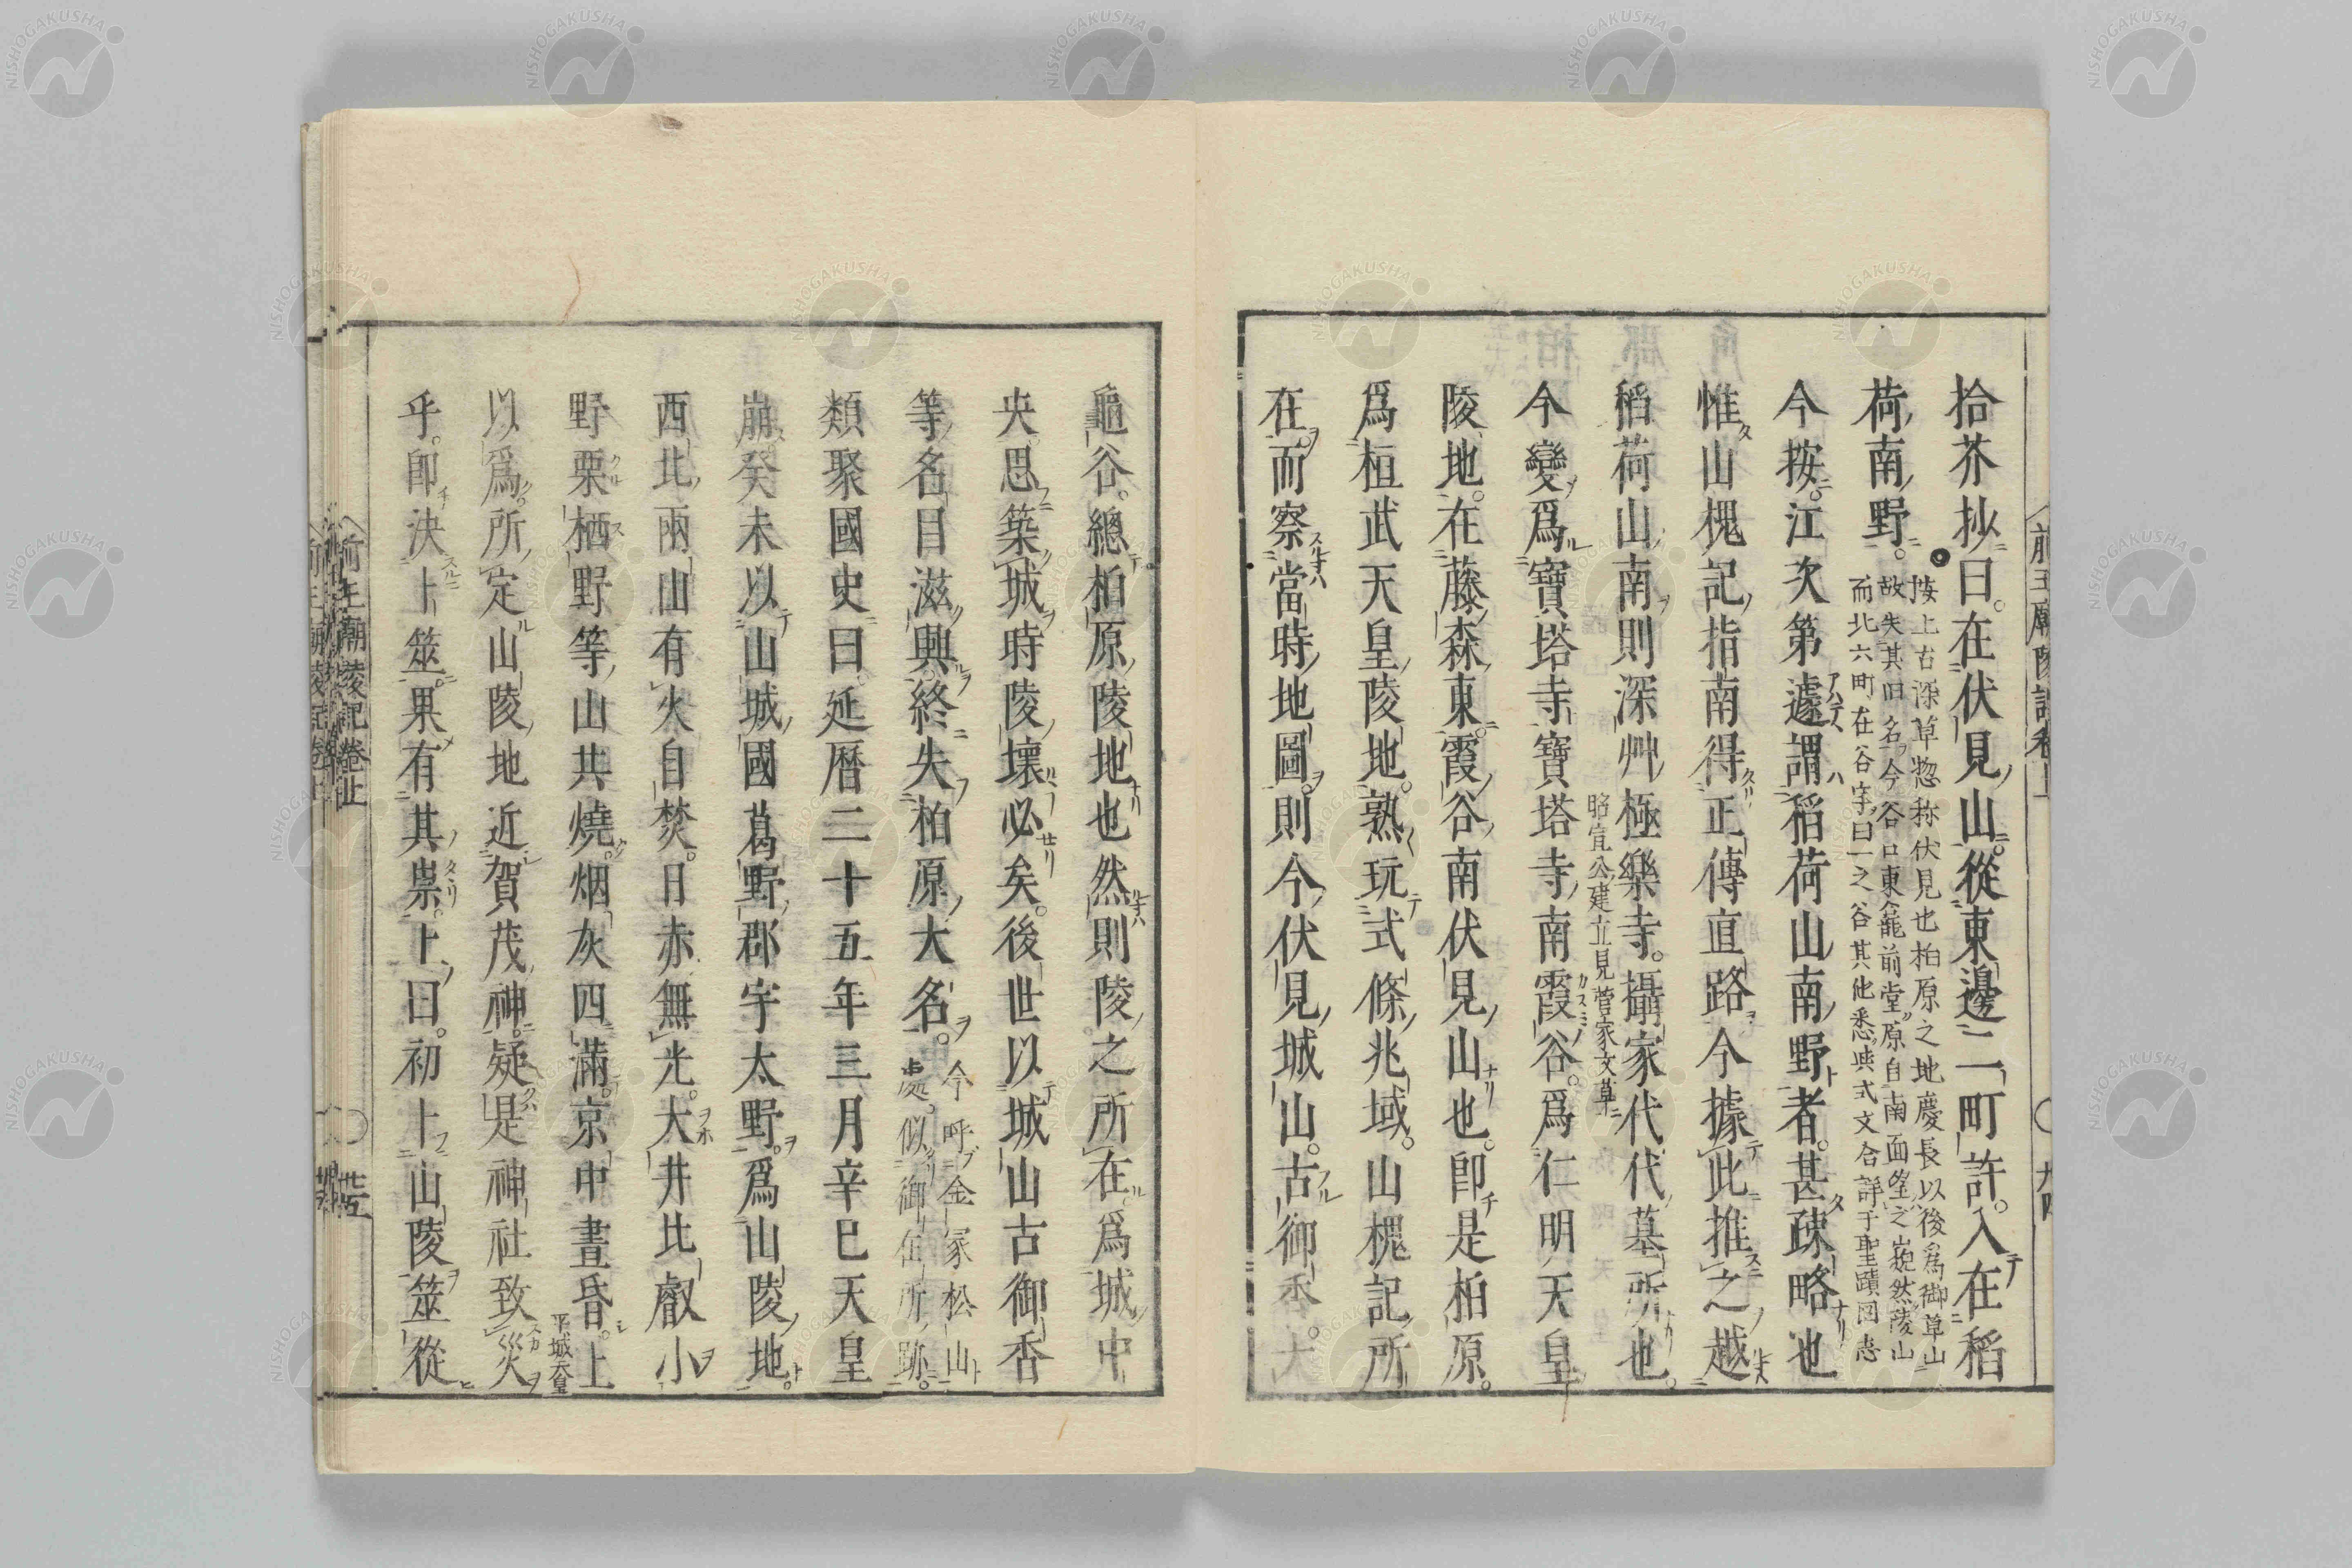 拾芥抄曰。在伏見山。從東邊二町許。入在稻
荷南野。
按上古深草惣称伏見也柏原之地慶長以後爲御草山
故失其旧名今谷口東龕前堂原自南面望之巋然陵山
而北六町在谷字曰一之谷其他悉与式文合詳于聖蹟図志
今按。江次第遽謂稻荷山南野者。甚疎略也
惟山槐記指南得正傳直路今據此推之越
稻荷山南則深艸極樂寺。攝家代代墓所也。
昭宣公建立見菅家文草
今變爲寶塔寺寶塔寺南霞谷。爲仁明天皇
陵地。在藤森東。霞谷南伏見山也。卽是柏原。
爲桓武天皇陵地。熟玩式條兆域。山槐記所
在。而察當時地圖。則今伏見城山。古御香大
龜谷。總柏原陵地也然則陵之所在爲城中
央。思築城時陵壞必矣。後世以城山古御香
等名目滋興。終失柏原大名。
今呼金家松山
處。似御在所跡。
類聚國史曰。延暦二十五年三月辛巳天皇
崩癸未以山城國葛野郡宇太野。爲山陵地。
西北兩山有火自焚。日赤無光。大井比叡小
野栗栖野等山共燒。烟灰四滿。京中晝昏。上
平城天皇
以爲。所定山陵地近賀茂神。疑是神社致災
乎。卽決卜筮。果有其祟。卜曰。初卜山陵筮從
前王廟陵記卷上
前王廟陵記卷上